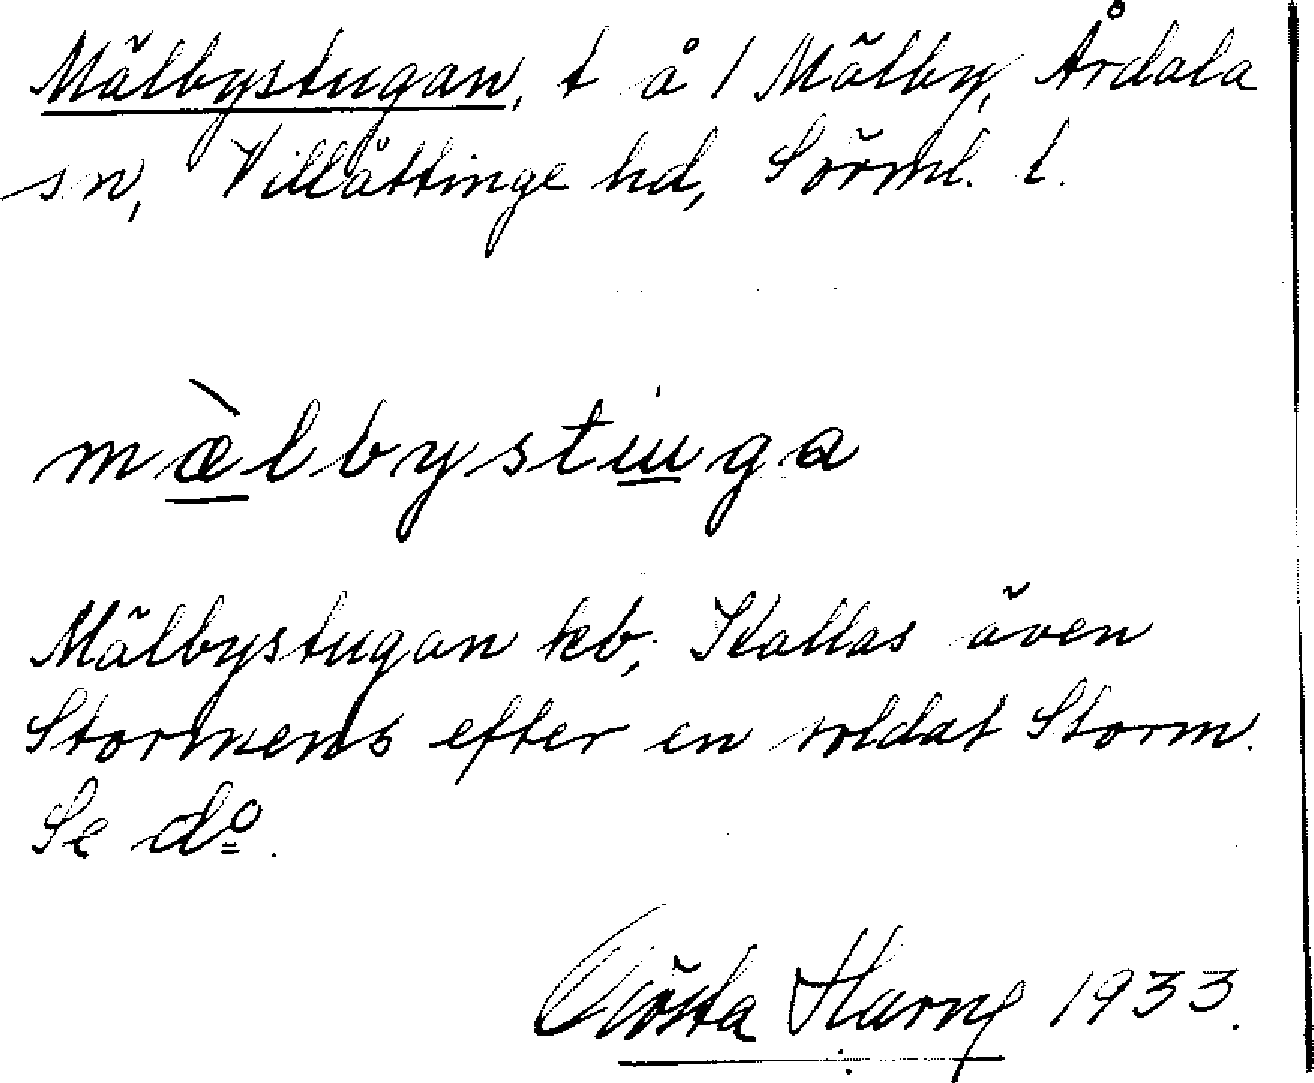 Mälbystugan, t å 1 Mälby, Årdala
sn, Villåttinge hd, Sörml. l.
mæ̀lbystuga
Mälbystugan kb; Kallas även
Stormens efter en soldat Storm.
Se do.
Gösta 1933.